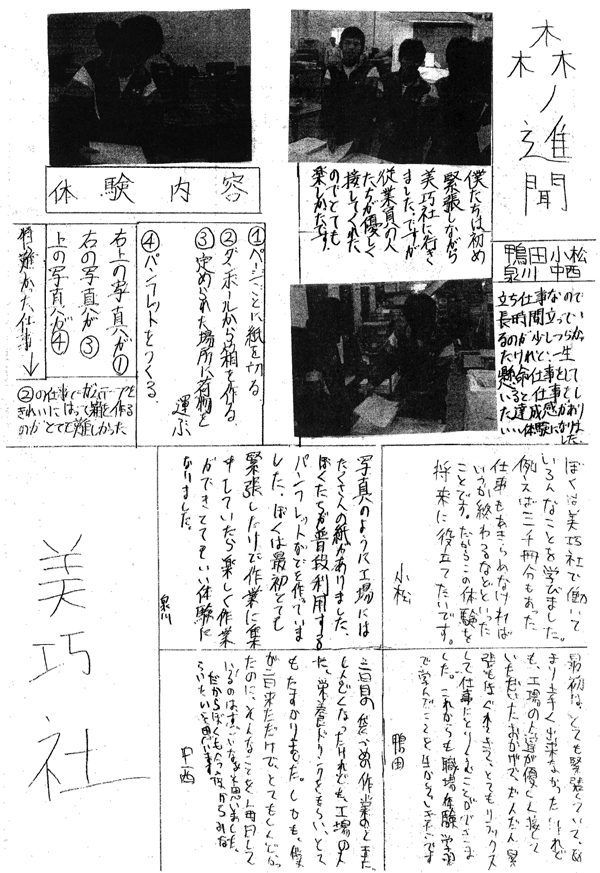 森ノ進聞
鴨田 小松
泉川 中西
僕たちは初め
緊張しながら
美巧社に行き
ました。ですが
従業員の人
たちが優しく
接してくれた
のでとても
楽しめたです。
体験内容
①ページごとに紙を切る
②ダンボールから箱を作る
③定められた場所に荷物を
運ぶ
④パンフレットをつくる
右上の写真が①
右の写真が③
上の写真が④
特に難かった仕事
ぼくは美巧社で働いて
いろんなことを学びました。
例えば二千冊分もあった
仕事もあきらめなければ
いつか終わるなどといった
ことです。だからこの体験を
将来に役立てたいです。
小松
写真のように工場には
たくさんの紙がありました。
ぼくたちが普段利用する
パンフレットなどを作っていま
した。ぼくは最初とても
緊張したけど作業に集
中していたら楽しく作業
ができてとてもいい体験に
なりました。
泉川
最初は、とても緊張していて、あ
まり上手く出来なかったけれど
も、工場の人達が優しく接して
いただいたおかげで、だんだん緊
張もほぐれてきて、とてもリラックス
して仕事にとりくむことができま
した。これからも職場体験学習
で学んだことを生かしていきたいです
鴨田
三日目の袋づめの作業のときに、
しんどくなったけれども、工場の人
に、栄養ドリンクをもらい、とて
もたすかりました。しかも、僕
が三日来ただけで、とてもしんどかっ
たのに、そんなことを毎日して
いるのはすごいなあと思いました。
中西
美巧社